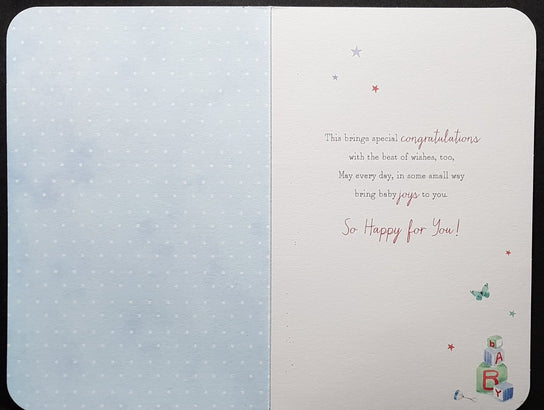 This brings special congratulations
with the best of wishes, too,
May every day, in some small way
bring baby joys to you.
So Happy for You!
b
A
B
Y